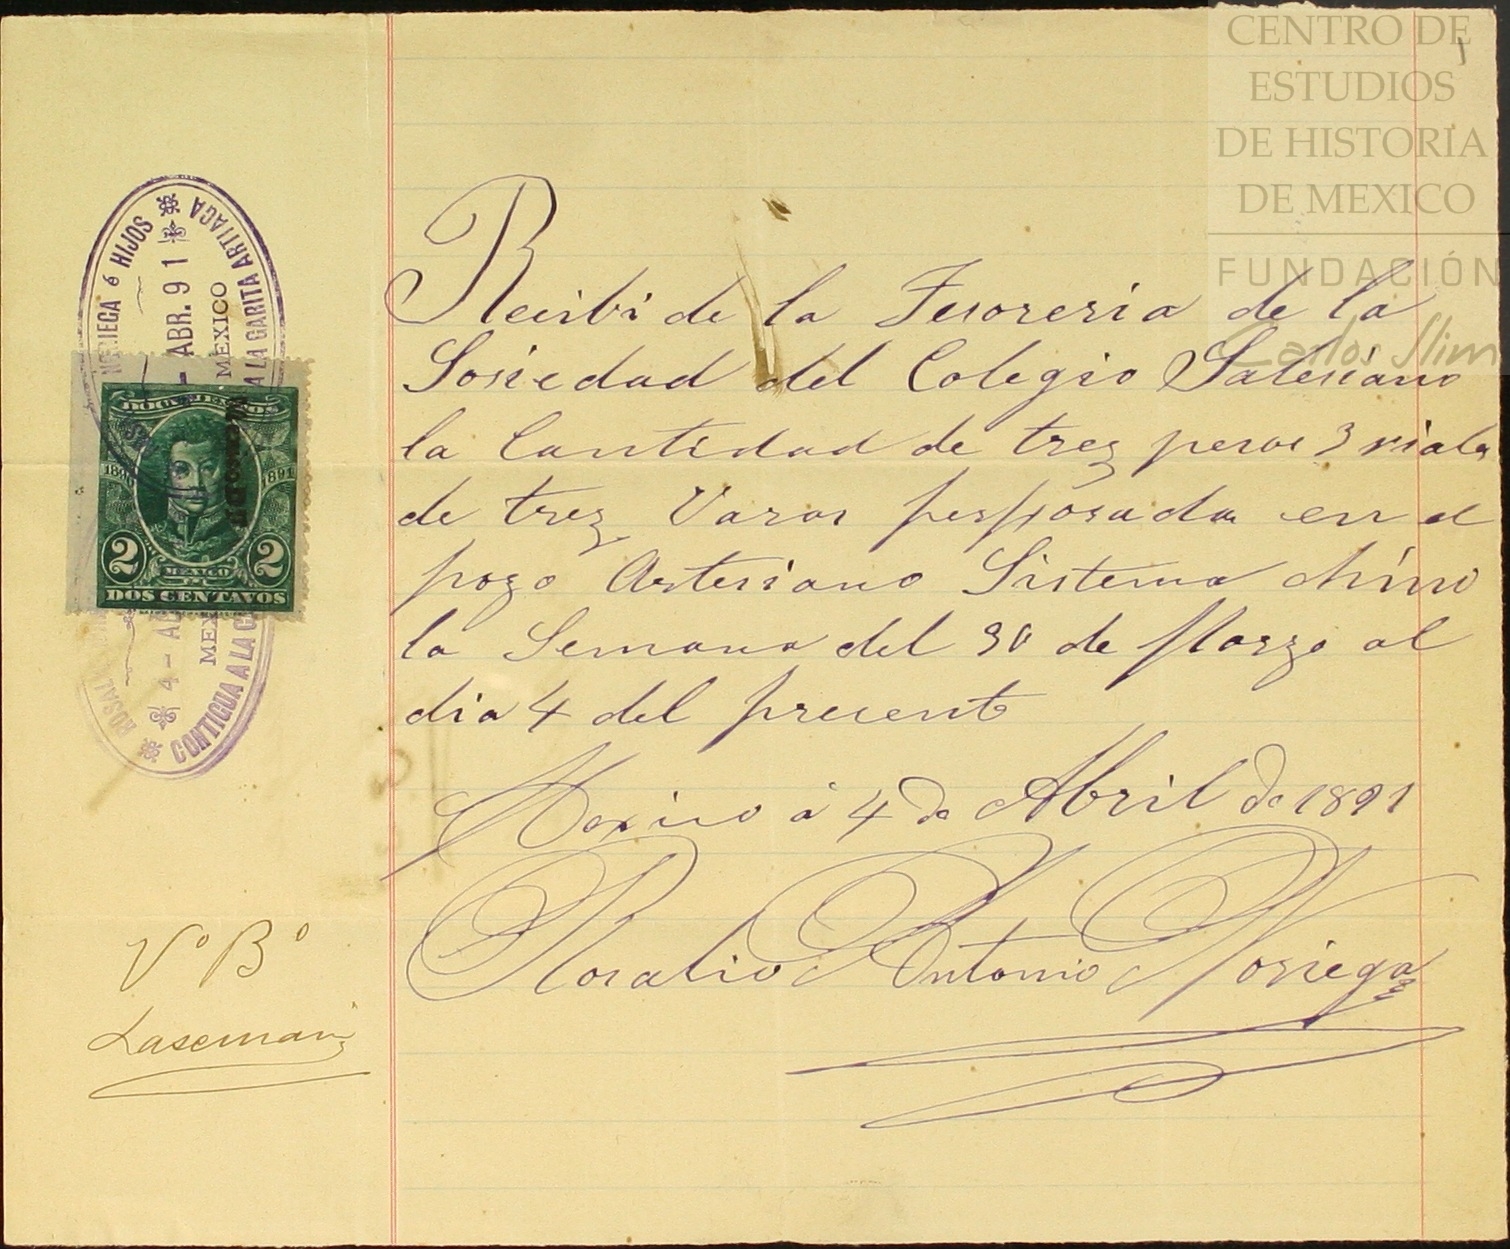 CENTRO DE
ESTUDIOS
DE HISTORIA
DE MEXICO
FUNDACIÓN
Carlos Slim
1
Recibi de la Tesoreria de la
Sosiedad del Colegio Salesiano
la Cantidad de trez pesos 3 rials
de trez Varas perfjorada en el
pozo Artesiano Sistema chino
la Semana del 30 de Marzo al
dia 4 del precente
Mexico á 4 de Abril de 1891
Rosalio Antonio Noriega
NORIEGA é HIJOS
ABR. 91
MEXICO
A LA GARITA ARTIAGA
DOCUMENTOS
1890 1891
2 MEXICO 2
DOS CENTAVOS
ROSAL
4 - A
MEX
CONTIGUA A LA G
Vo Bo
Lasemani